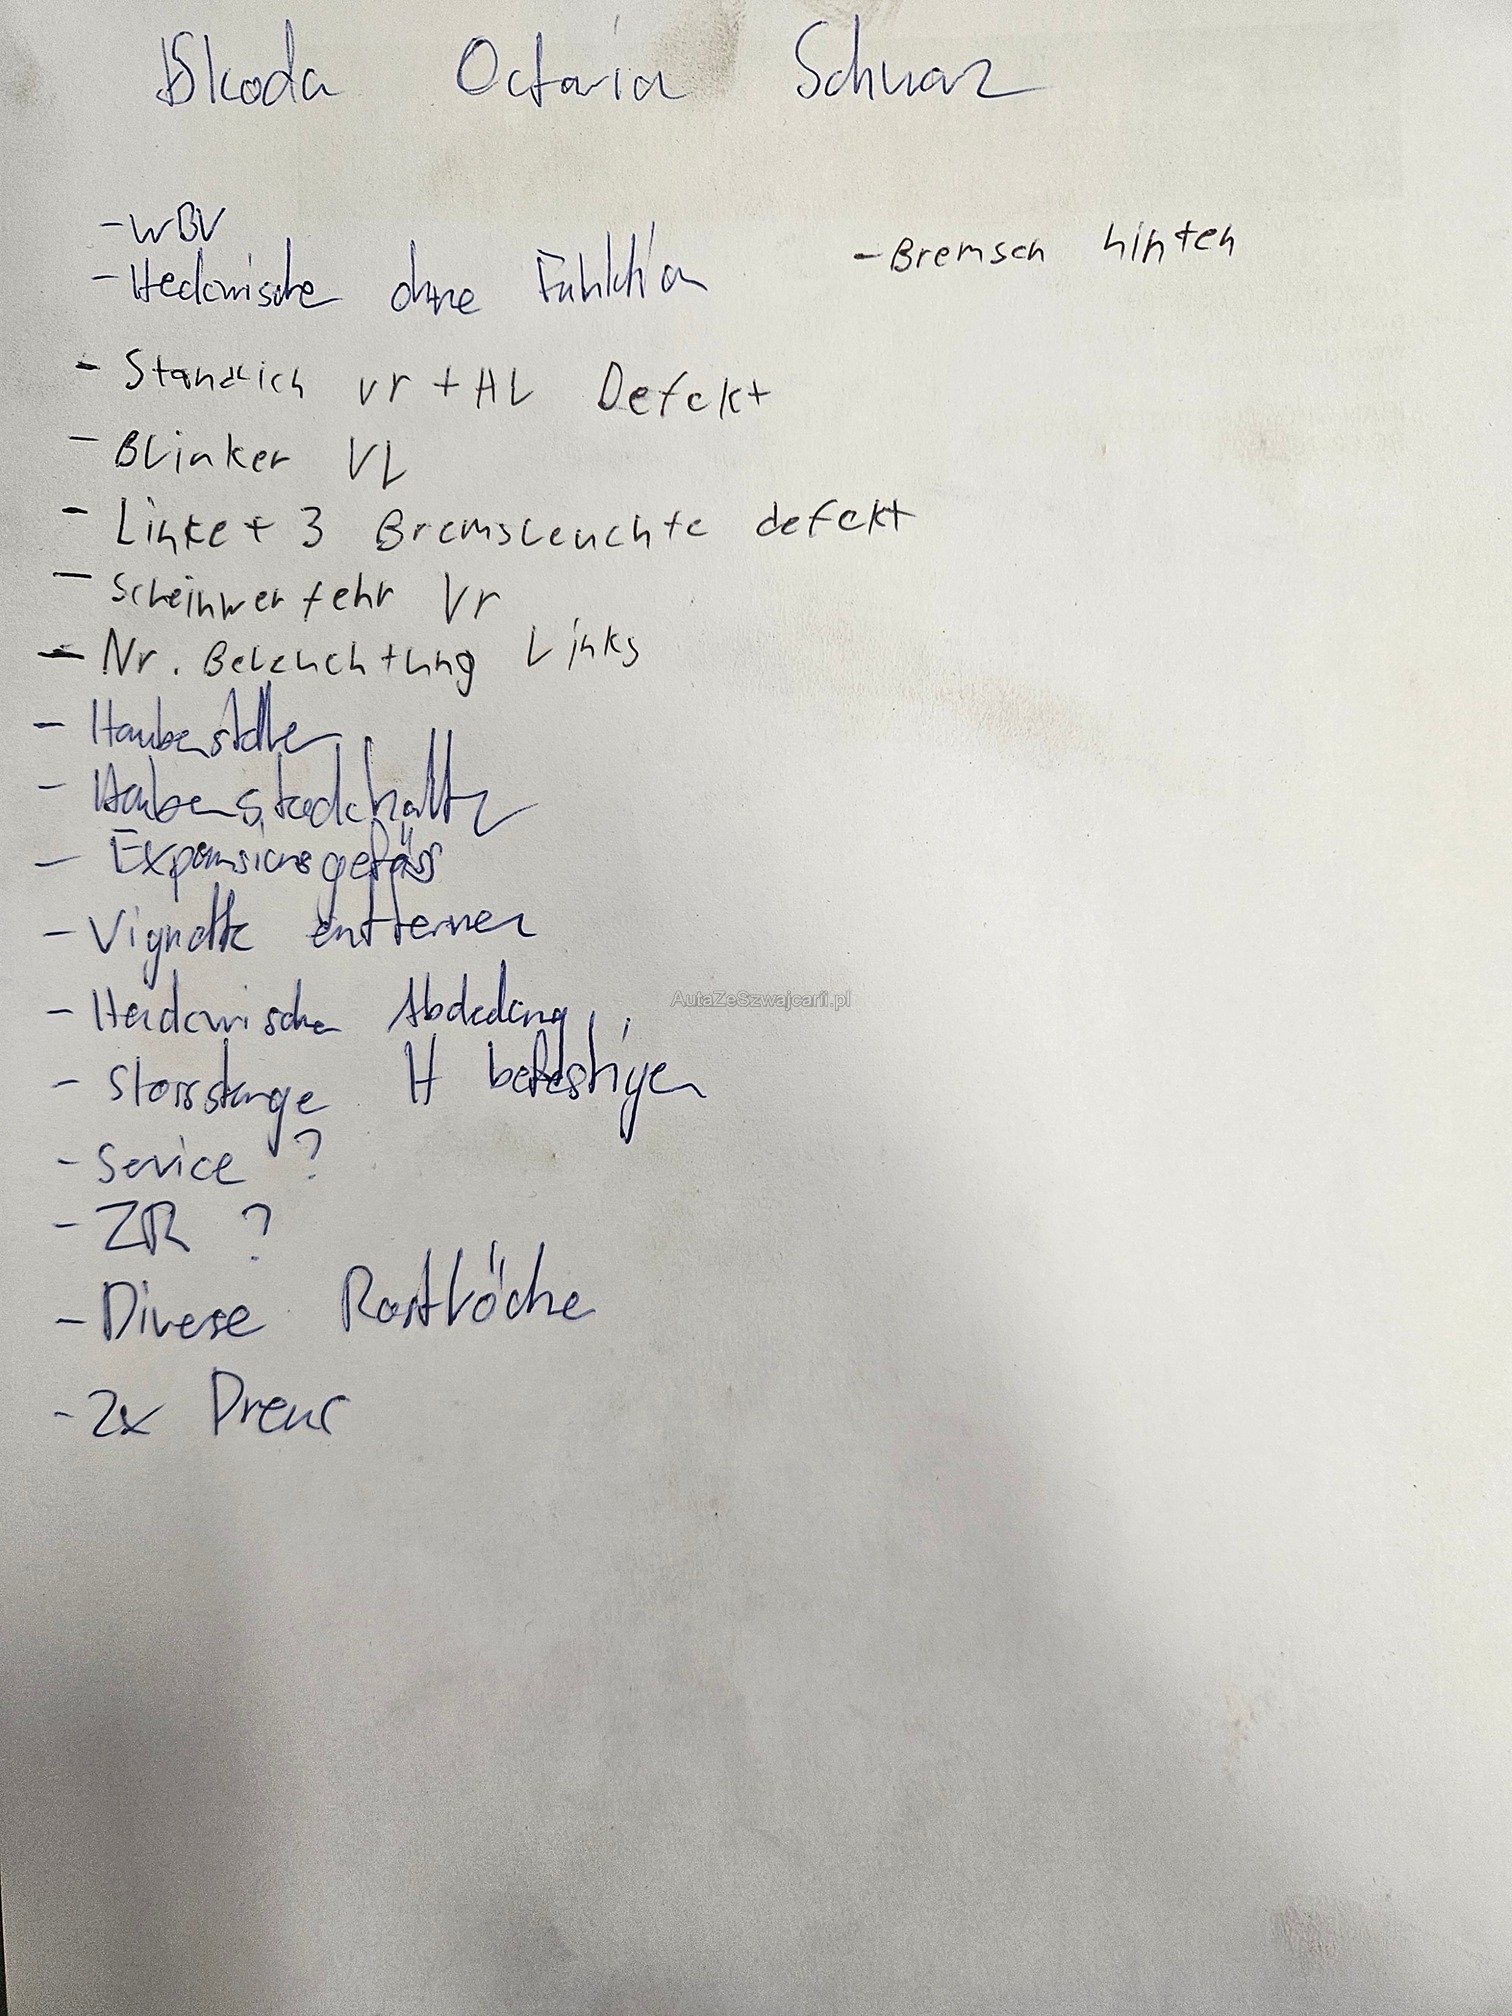 Skoda Octavia Schwarz
- WBV
- Heckwische ohne Funktion
- Bremsen hinten
- Standlich vr + HL Defekt
- Blinker VL
- Linke + 3 Bremsleuchte defekt
- Scheinwerfehr Vr
- Nr. Beleuchtung Links
- Haubensteller
- Haubenstockhalter
- Expansionsgefäss
- Vignette entfernen
- Heckwischer Abdeckung
- Stossstange H befestigen
- Service ?
- ZR ?
- Diverse Rostlöcher
- 2x
AutaZeSzwajcarii.pl